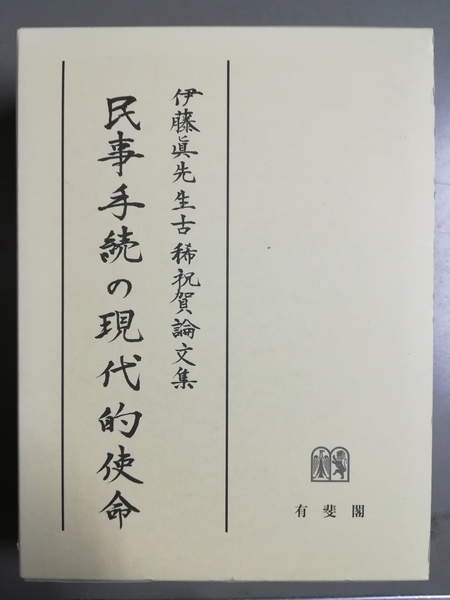 伊藤眞先生古稀祝賀論文集
民事手続の現代的使命
有斐閣